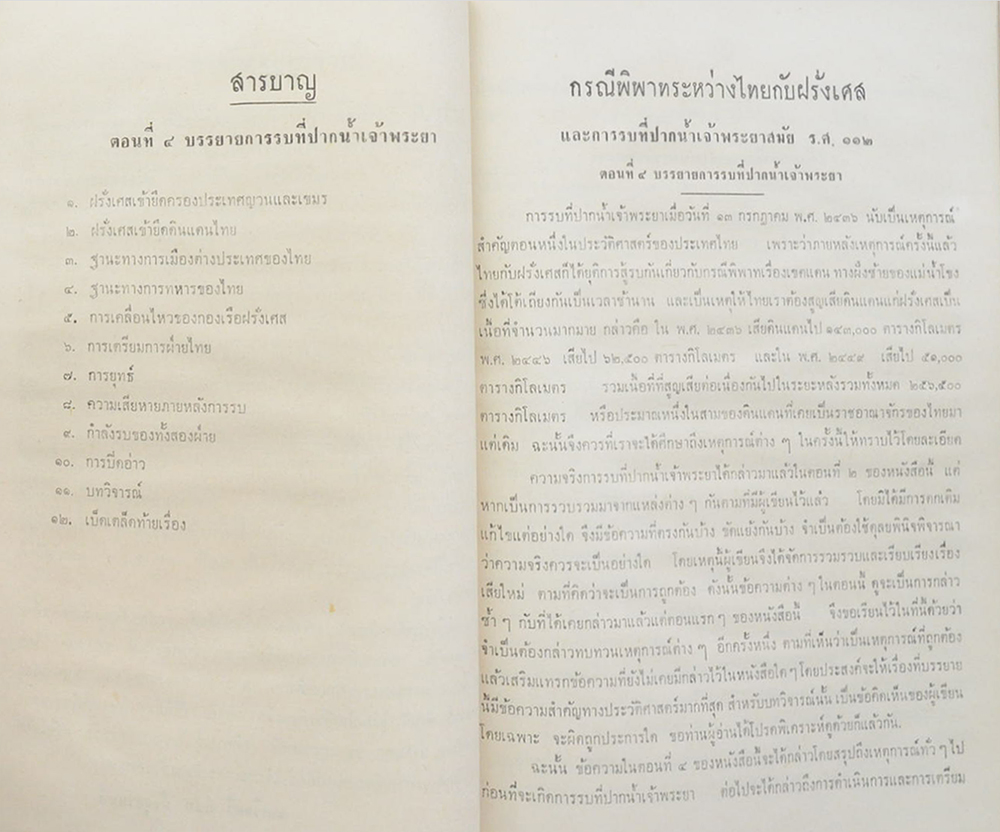 สารบาญ
ตอนที่ ๔ บรรยายการรบที่ปากน้ำเจ้าพระยา
๑. ฝรั่งเศสเข้ายึดครองประเทศญวนและเขมร
๒. ฝรั่งเศสเข้ายึดดินแดนไทย
๓. ฐานะทางการเมืองต่างประเทศของไทย
๔. ฐานะทางการทหารของไทย
๕. การเคลื่อนไหวของกองเรือฝรั่งเศส
๖. การเตรียมการฝ่ายไทย
๗. การยุทธ์
๘. ความเสียหายภายหลังการรบ
๙. กำลังรบของทั้งสองฝ่าย
๑๐. การปิดอ่าว
๑๑. บทวิจารณ์
๑๒. เบ็ดเตล็ดท้ายเรื่อง
กรณีพิพาทระหว่างไทยกับฝรั่งเศส
และการรบที่ปากน้ำเจ้าพระยาสมัย ร.ศ. ๑๑๒
ตอนที่ ๔ บรรยายการรบที่ปากน้ำเจ้าพระยา
การรบที่ปากน้ำเจ้าพระยาเมื่อวันที่ ๑๓ กรกฎาคม พ.ศ. ๒๔๓๖ นับเป็นเหตุการณ์
สำคัญตอนหนึ่งในประวัติศาสตร์ของประเทศไทย เพราะว่าภายหลังเหตุการณ์ครั้งนี้แล้ว
ไทยกับฝรั่งเศสก็ได้ยุติการสู้รบกันเกี่ยวกับกรณีพิพาทเรื่องเขตแดน ทางฝั่งซ้ายของแม่น้ำโขง
ซึ่งได้โต้เถียงกันเป็นเวลาช้านาน และเป็นเหตุให้ไทยเราต้องสูญเสียดินแดนแก่ฝรั่งเศสเป็น
เนื้อที่จำนวนมากมาย กล่าวคือ ใน พ.ศ. ๒๔๓๖ เสียดินแดนไป ๑๔๓,๐๐๐ ตารางกิโลเมตร
พ.ศ. ๒๔๔๖ เสียไป ๖๒,๕๐๐ ตารางกิโลเมตร และใน พ.ศ. ๒๔๔๙ เสียไป ๕๑,๐๐๐
ตารางกิโลเมตร รวมเนื้อที่ที่สูญเสียต่อเนื่องกันไปในระยะหลังรวมทั้งหมด ๒๕๖,๕๐๐
ตารางกิโลเมตร หรือประมาณหนึ่งในสามของดินแดนที่เคยเป็นราชอาณาจักรของไทยมา
แต่เดิม ฉะนั้นจึงควรที่เราจะได้ศึกษาถึงเหตุการณ์ต่าง ๆ ในครั้งนี้ให้ทราบไว้โดยละเอียด
ความจริงการรบที่ปากน้ำเจ้าพระยาได้กล่าวมาแล้วในตอนที่ ๒ ของหนังสือนี้ แต่
หากเป็นการรวบรวมมาจากแหล่งต่าง ๆ กันตามที่มีผู้เขียนไว้แล้ว โดยมิได้มีการตกเติม
แก้ไขแต่อย่างใด จึงมีข้อความที่ตรงกันบ้าง ขัดแย้งกันบ้าง จำเป็นต้องใช้ดุลยพินิจพิจารณา
ว่าความจริงควรจะเป็นอย่างใด โดยเหตุนี้ผู้เขียนจึงได้จัดการรวมรวบและเรียบเรียงเรื่อง
เสียใหม่ ตามที่คิดว่าจะเป็นการถูกต้อง ดังนั้นข้อความต่าง ๆ ในตอนนี้ ดูจะเป็นการกล่าว
ซ้ำ ๆ กับที่ได้เคยกล่าวมาแล้วแต่ตอนแรก ๆ ของหนังสือนี้ จึงขอเรียนไว้ในที่นี้ด้วยว่า
จำเป็นต้องกล่าวทบทวนเหตุการณ์ต่าง ๆ อีกครั้งหนึ่ง ตามที่เห็นว่าเป็นเหตุการณ์ที่ถูกต้อง
แล้วเสริมแทรกข้อความที่ยังไม่เคยมีกล่าวไว้ในหนังสือใด ๆ โดยประสงค์จะให้เรื่องที่บรรยาย
นี้มีข้อความสำคัญทางประวัติศาสตร์มากที่สุด สำหรับบทวิจารณ์นั้น เป็นข้อคิดเห็นของผู้เขียน
โดยเฉพาะ จะผิดถูกประการใด ขอท่านผู้อ่านได้โปรดพิเคราะห์ดูด้วยก็แล้วกัน.
ฉะนั้น ข้อความในตอนที่ ๔ ของหนังสือนี้จะได้กล่าวโดยสรุปถึงเหตุการณ์ทั่ว ๆ ไป
ก่อนที่จะเกิดการรบที่ปากน้ำเจ้าพระยา ต่อไปจะได้กล่าวถึงการดำเนินการและการเตรียม